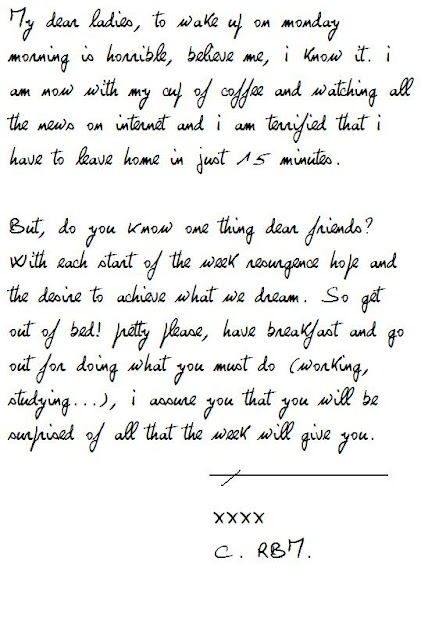 My dear ladies, to wake up on monday
morning is horrible, believe me, i know it. i
am now with my cup of coffee and watching all
the news on internet and i am terrified that i
have to leave home in just 15 minutes.
But, do you know one thing dear friends?
With each start of the week resurgence hope and
the desire to achieve what we dream. So get
out of bed! pretty please, have breakfast and go
out for doing what you must do (working,
studying...), i assure you that you will be
surprised of all that the week will give you.
xxxx
C. RBM.